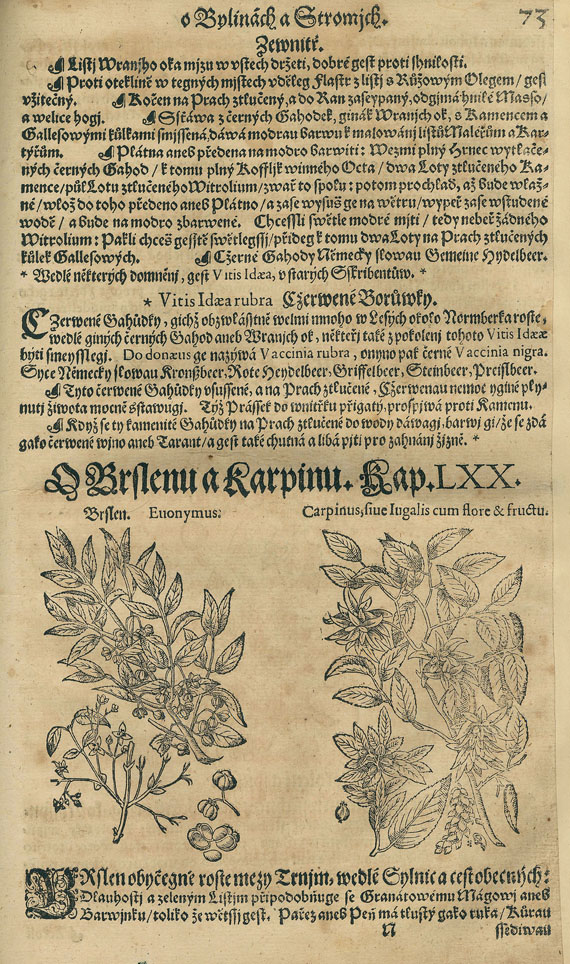 o Bylinách a Stromjch.
73
Zewnitř.
Listj Wranjho oka mjzu w vstech držeti, dobré gest proti shnilosti.
Proti oteklině w tegných mjstech vděleg Flastr z listj s Růžowým Olegem / gest
vžitečný. Kočen na Prach ztlučený, a do Ran zaseypaný, odgjmá hnilé Masso /
a welice hogj. Sstáwa z černých Gahodek, ginák Wranjch ok, s Kamencem a
Gallesowými kůlkami smjssená, dáwá modrau barwu k malowánj listůw Maléřům a Kar-
týřům. Plátna aneb předena na modro barwiti: Wezmi plný Hrnec wytlače-
ných černých Gahod / k tomu plný Kofflik winného Octa / dwa Loty ztlučeného Ka-
mence / půl Lotu ztlučeného Witrolium / zwař to spolu: potom prochlaď, až bude wlaž-
né / wlož do toho předeno aneb Plátno / a zase wysuš ge na wětru / wypeř zase w studené
wodě / a bude na modro zbarwené. Chcessli swětle modré mjti / tedy neber žádného
Witrolium: Pakli chceš gesstě swětlegssj / přideg k tomu dwa Loty na Prach ztlučených
kůlek Gallesowých. Cžerné Gahody Německy slowau Gemeine Heydelbeer.
* Wedlé některých domněnj, gest Vitis Idæa, v starých Sskribentůw. *
* Vitis Idæa rubra Cžerwené Borůwky.
CZerwené Gahůdky, gichž obzwlásstně welmi mnoho w Lesých okolo Normberka roste,
wedlé giných černých Gahod aneb Wranjch ok, někteři také z pokolenj tohoto Vitis Idææ
býti smeysslegj. Dodonæus ge nazýwá Vaccinia rubra, onyno pak černé Vaccinia nigra.
Syce Německy slowau Kronßbeer, Rote Heydelbeer, Griffelbeer, Steinbeer, Preißlbeer.
Tyto čerwené Gahůdky vsussené, a na Prach ztlučené, Cžerwenau nemoc y giné ply-
nutj žiwota mocně sstawugj. Týž Prássek do wnitřku přigatý, prospjwá proti Kamenu.
Když se ty kamenité Gahůdky na Prach ztlučené do wody dáwagj, barwj gi / že se zdá
gako čerwené wjno aneb Tarant / a gest také chutná a libá pitj pro zahnánj žjzně. *
O Brslenu a Karpinu. Kap. LXX.
Brslen. Euonymus.
Carpinus, siue Iugalis cum flore & fructu.
BRslen obyčegně roste mezy Trnjm, wedlé Sylnic a cest obecných:
Dlauhostj a zeleným Listjm připodobňuge se Granátowému Mágowj aneb
Barwjnku / toliko že wětssj gest. Pařez aneb Peň má tlustý gako ruka / Kůrau
N
ssediwau